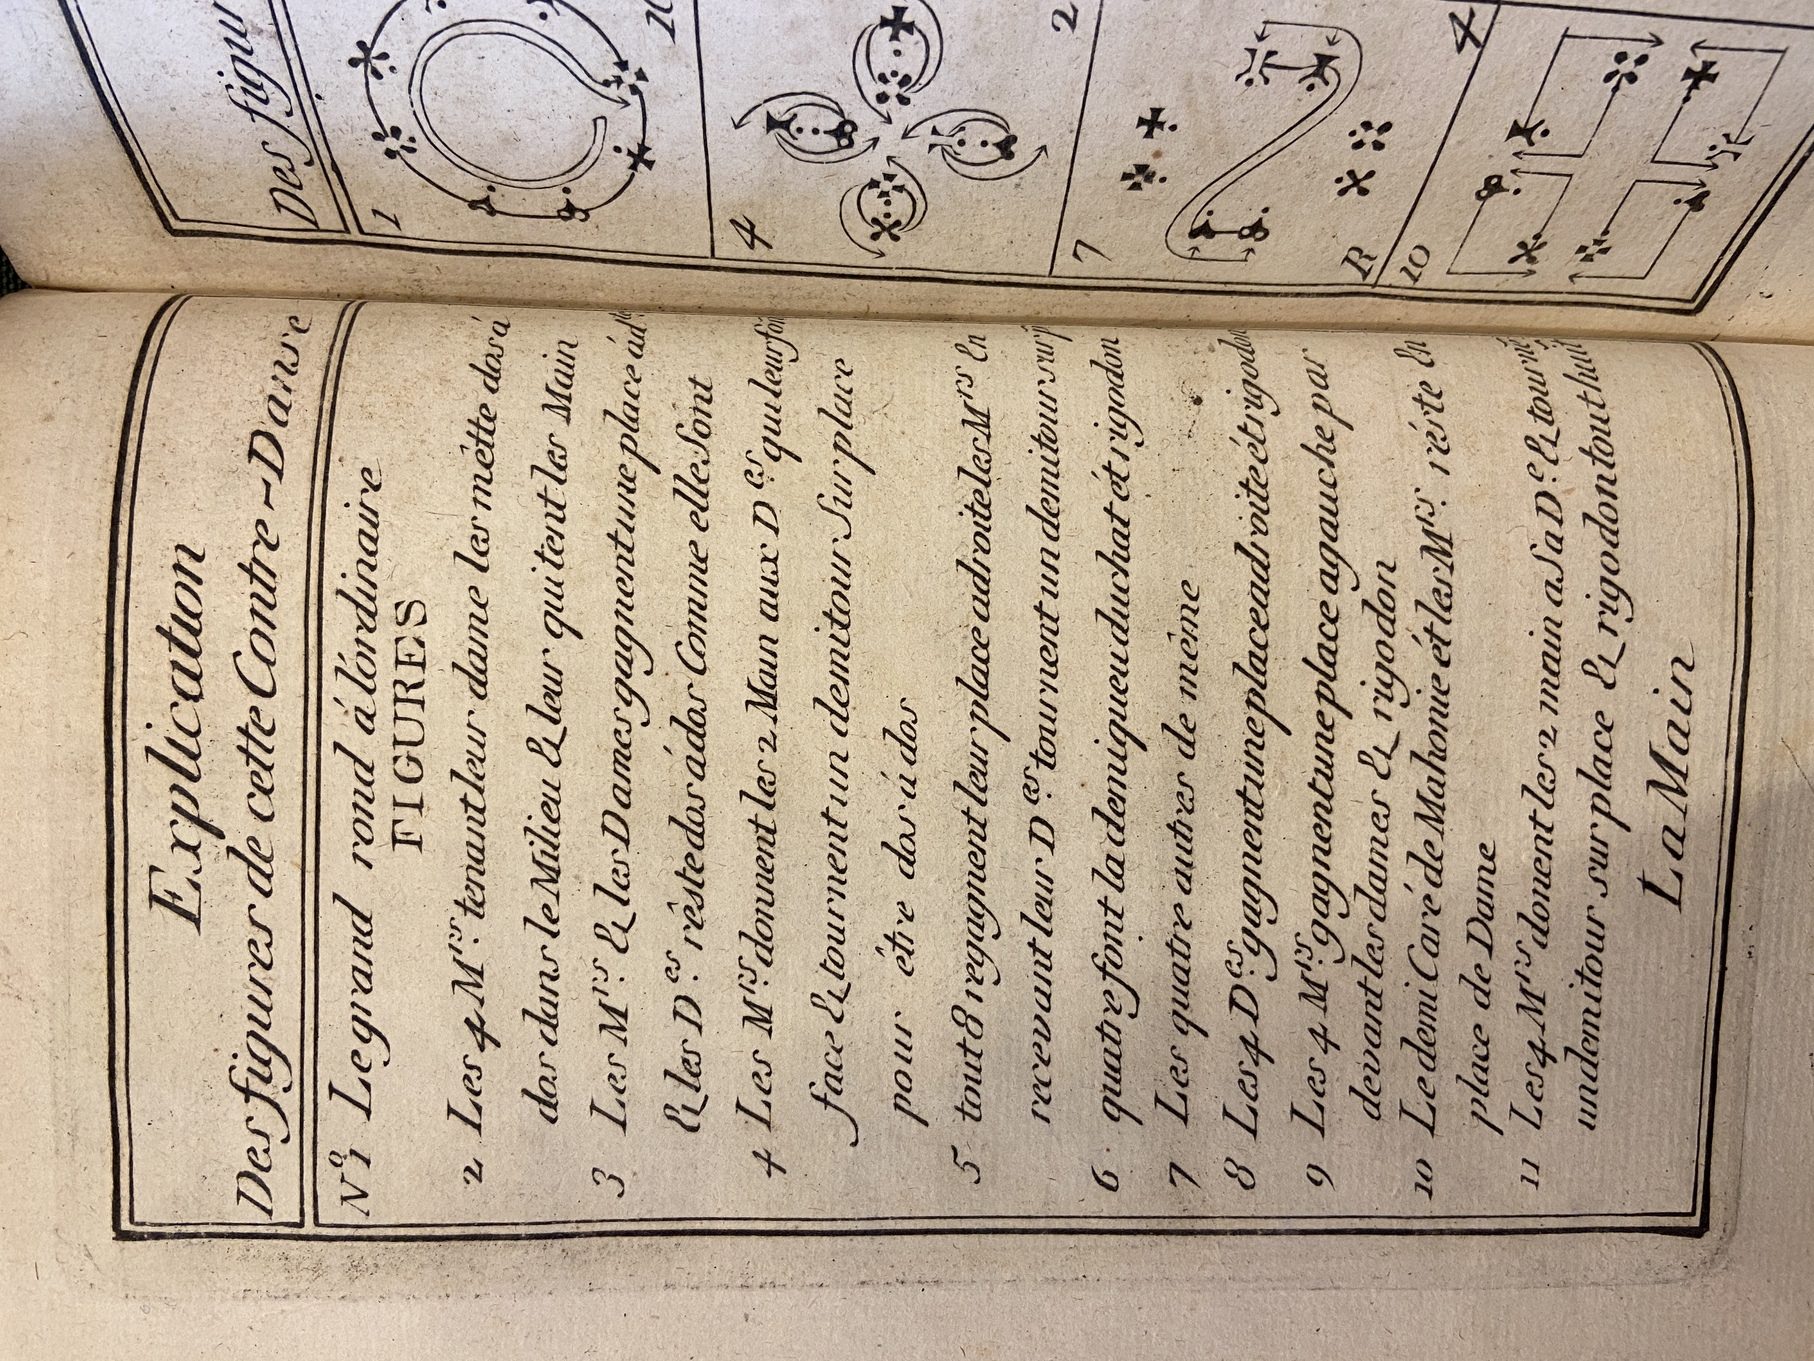 Explication
Des figures de cette Contre-Danse
N.º 1 Le grand rond á l'ordinaire
FIGURES
2 Les 4 M.rs tenant leur dame les métte dos á
dos dans le Milieu & leur quitent les Main
3 Les M.rs & les Dames gagnent une place á
& les D.es réste dos á dos Comme elle Sont
4 Les M.rs donnent les 2 Main aux D.es qui leur
face & tournent un demi tour Sur place
pour étre dos á dos
5 tout 8 regagnent leur place a droite les M.rs En
recevant leur D.es tournent un demi tour sur
6 quatre font la demi queu du chat ét rigodon
7 Les quatre autres de méme
8 Les 4 D.es gagnent une place a droite ét rigodon
9 Les 4 M.rs gagnent une place a gauche par
devant les dames & rigodon
10 Le demi Caré de Mahonie ét les M.rs réste En
place de Dame
11 Les 4 M.rs donent les 2 main a Sa D.e & tourne
un demi tour sur place & rigodon tout huit
La Main
Des figur
1
4
2
7
R
4
10